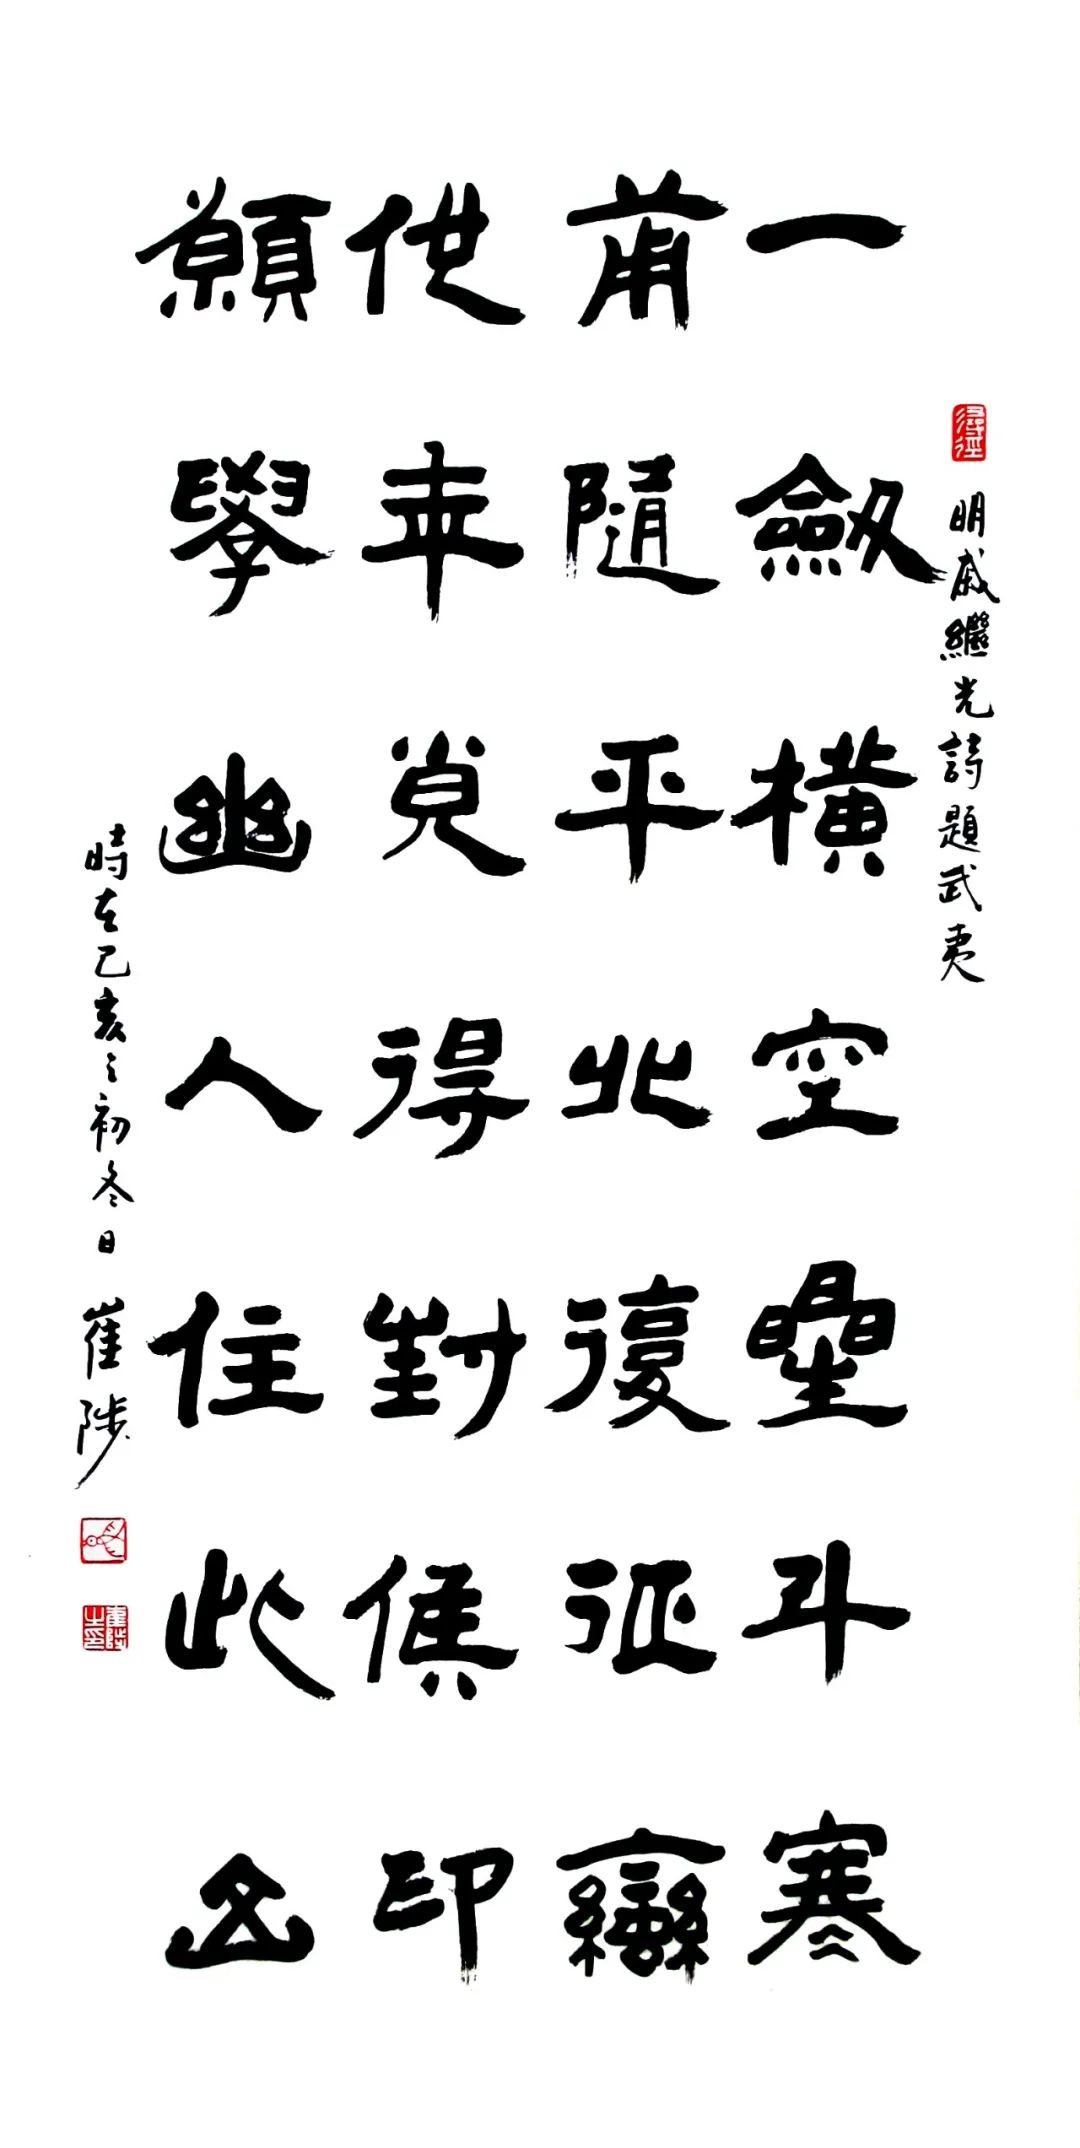 尋徑
明戚繼光詩題武夷
一劔橫空曐斗寒
甫隨平北復征蠻
他年覓得封侯印
願學幽人住此山
時在己亥之初冬日 崔陟
崔陟之印